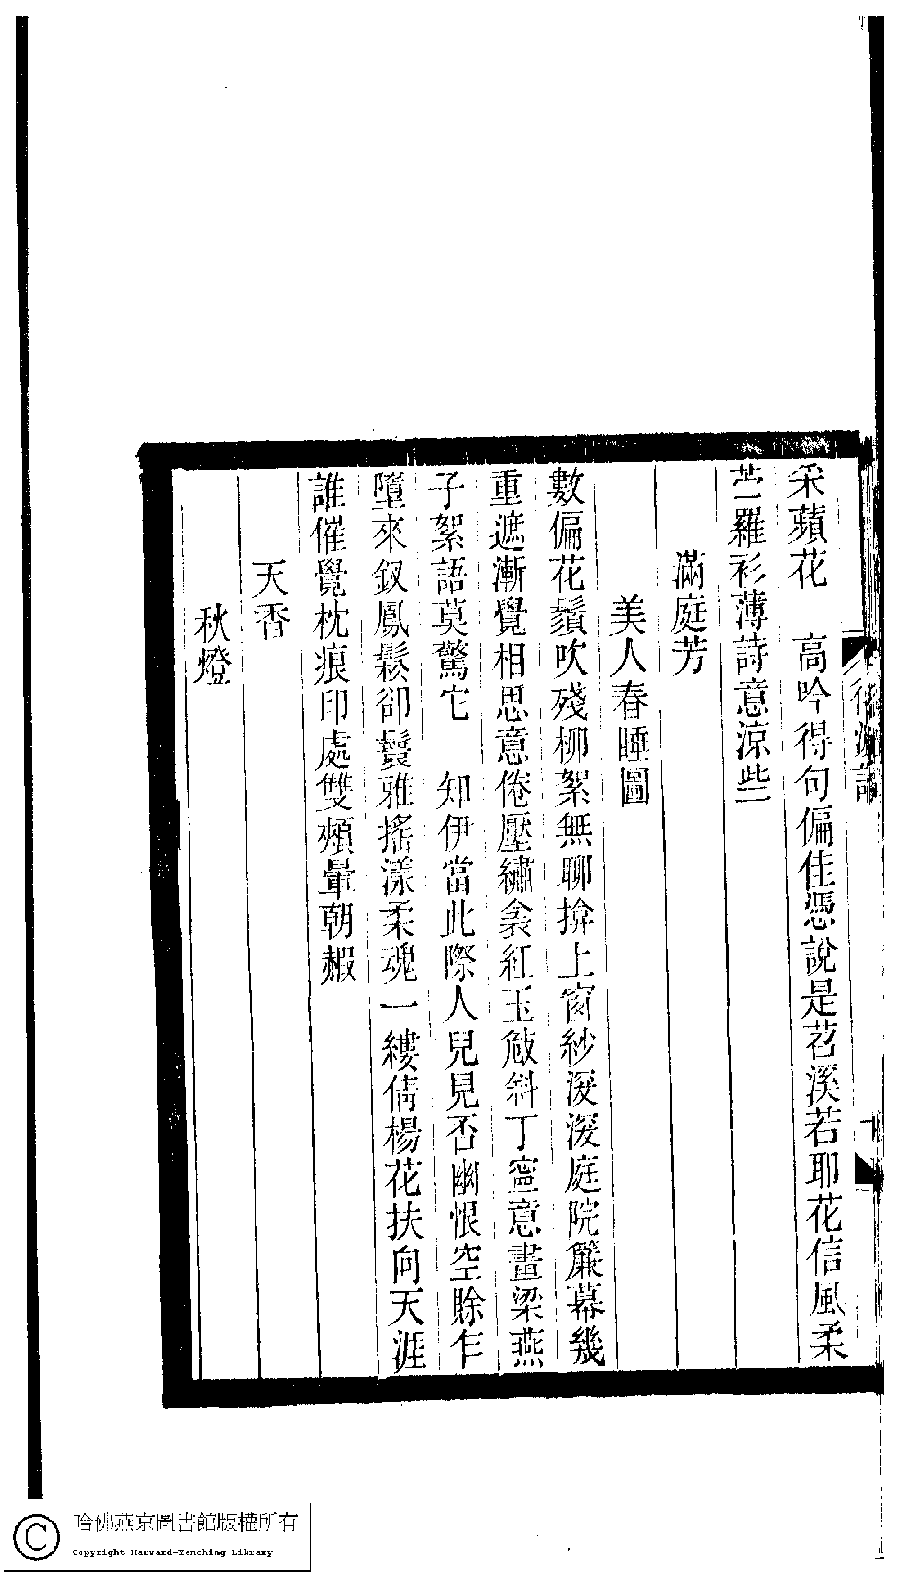 采蘋花　高吟得句偏佳憑說是苕溪若耶花信風柔
苎羅衫薄詩意涼些
滿庭芳
美人春睡圖
數偏花鬚吹殘柳絮無聊揜上窗紗深深庭院簾幕幾
重遮漸覺相思意倦壓繡衾紅玉敧斜丁寧意畫梁燕
子絮語莫驚它　知伊當此際人兒見否幽恨空賒乍
墮來釵鳳鬆卻鬟雅搖漾柔魂一縷倩楊花扶向天涯
誰催覺枕痕印處雙頰暈朝赮
天香
秋燈
十
哈佛燕京圖書館版權所有
Copyright Harvard-Yenching Library